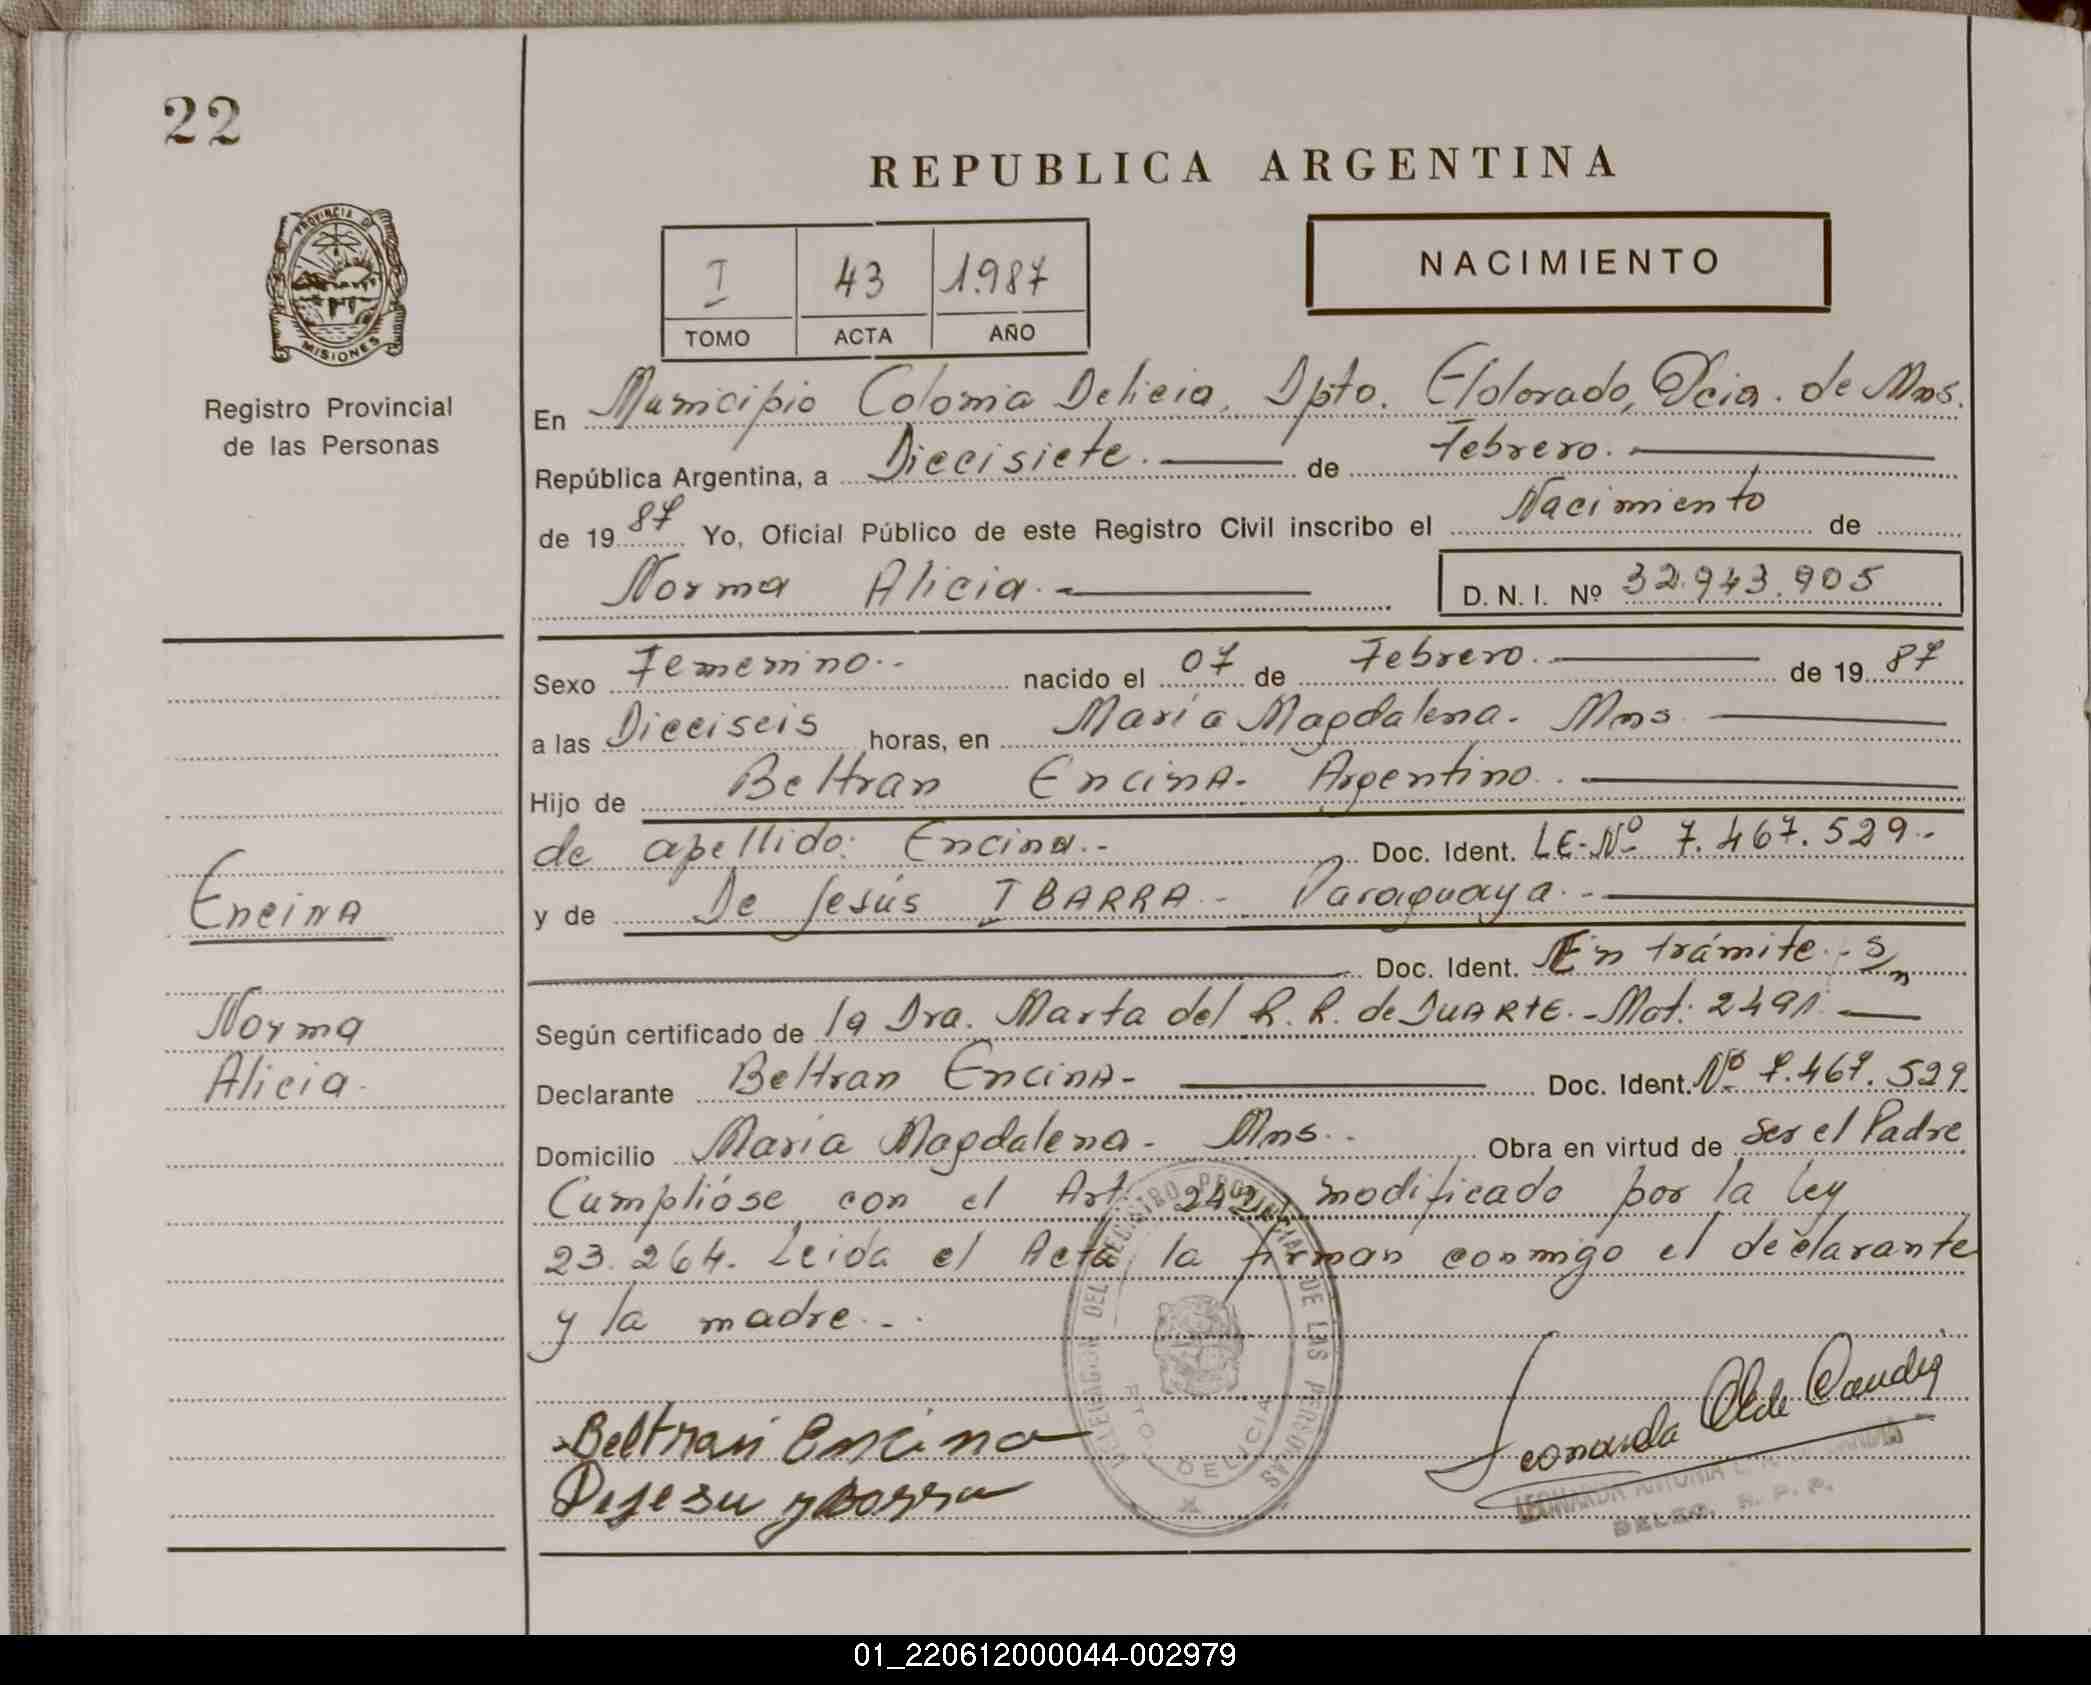 22
REPUBLICA ARGENTINA
PROVINCIA DE
MISIONES
Registro Provincial
de las Personas
I 43 1.987
TOMO ACTA AÑO
NACIMIENTO
En Municipio Colonia Delicia, Dpto. Eldorado, Pcia. de Mns.
República Argentina, a Diecisiete. de Febrero.
de 1987 Yo, Oficial Público de este Registro Civil inscribo el Nacimiento de
Norma Alicia. D. N. I. Nº 32.943.905
Sexo Femenino.- nacido el 07 de Febrero. de 1987
a las Dieciseis horas, en María Magdalena. Mns.
Hijo de Beltran Encina. Argentino.
de apellido: Encina.- Doc. Ident. LE-Nº 7.467.529.-
y de De Jesús IBARRA - Paraguaya.-
Doc. Ident. En trámite.-
Según certificado de la Dra. Marta del R. R. de DUARTE.-Mat: 2491.
Declarante Beltran Encina- Doc. Ident. Nº 7.467.529
Domicilio María Magdalena. Mns.. Obra en virtud de Ser el Padre
Cumplióse con el Art. 242, modificado por la ley
23.264. Leida el Acta, la firman conmigo el declarante
y la madre.-.
Encina
Norma
Alicia.
Beltran Encina
Dejesu ybarra
DELEGACION DEL REGISTRO PROVINCIAL DE LAS PERSONAS
PTO. DELICIA
Leonarda
LEONARDA ANTONIA
DELEG. R. P. P.
01_220612000044-002979